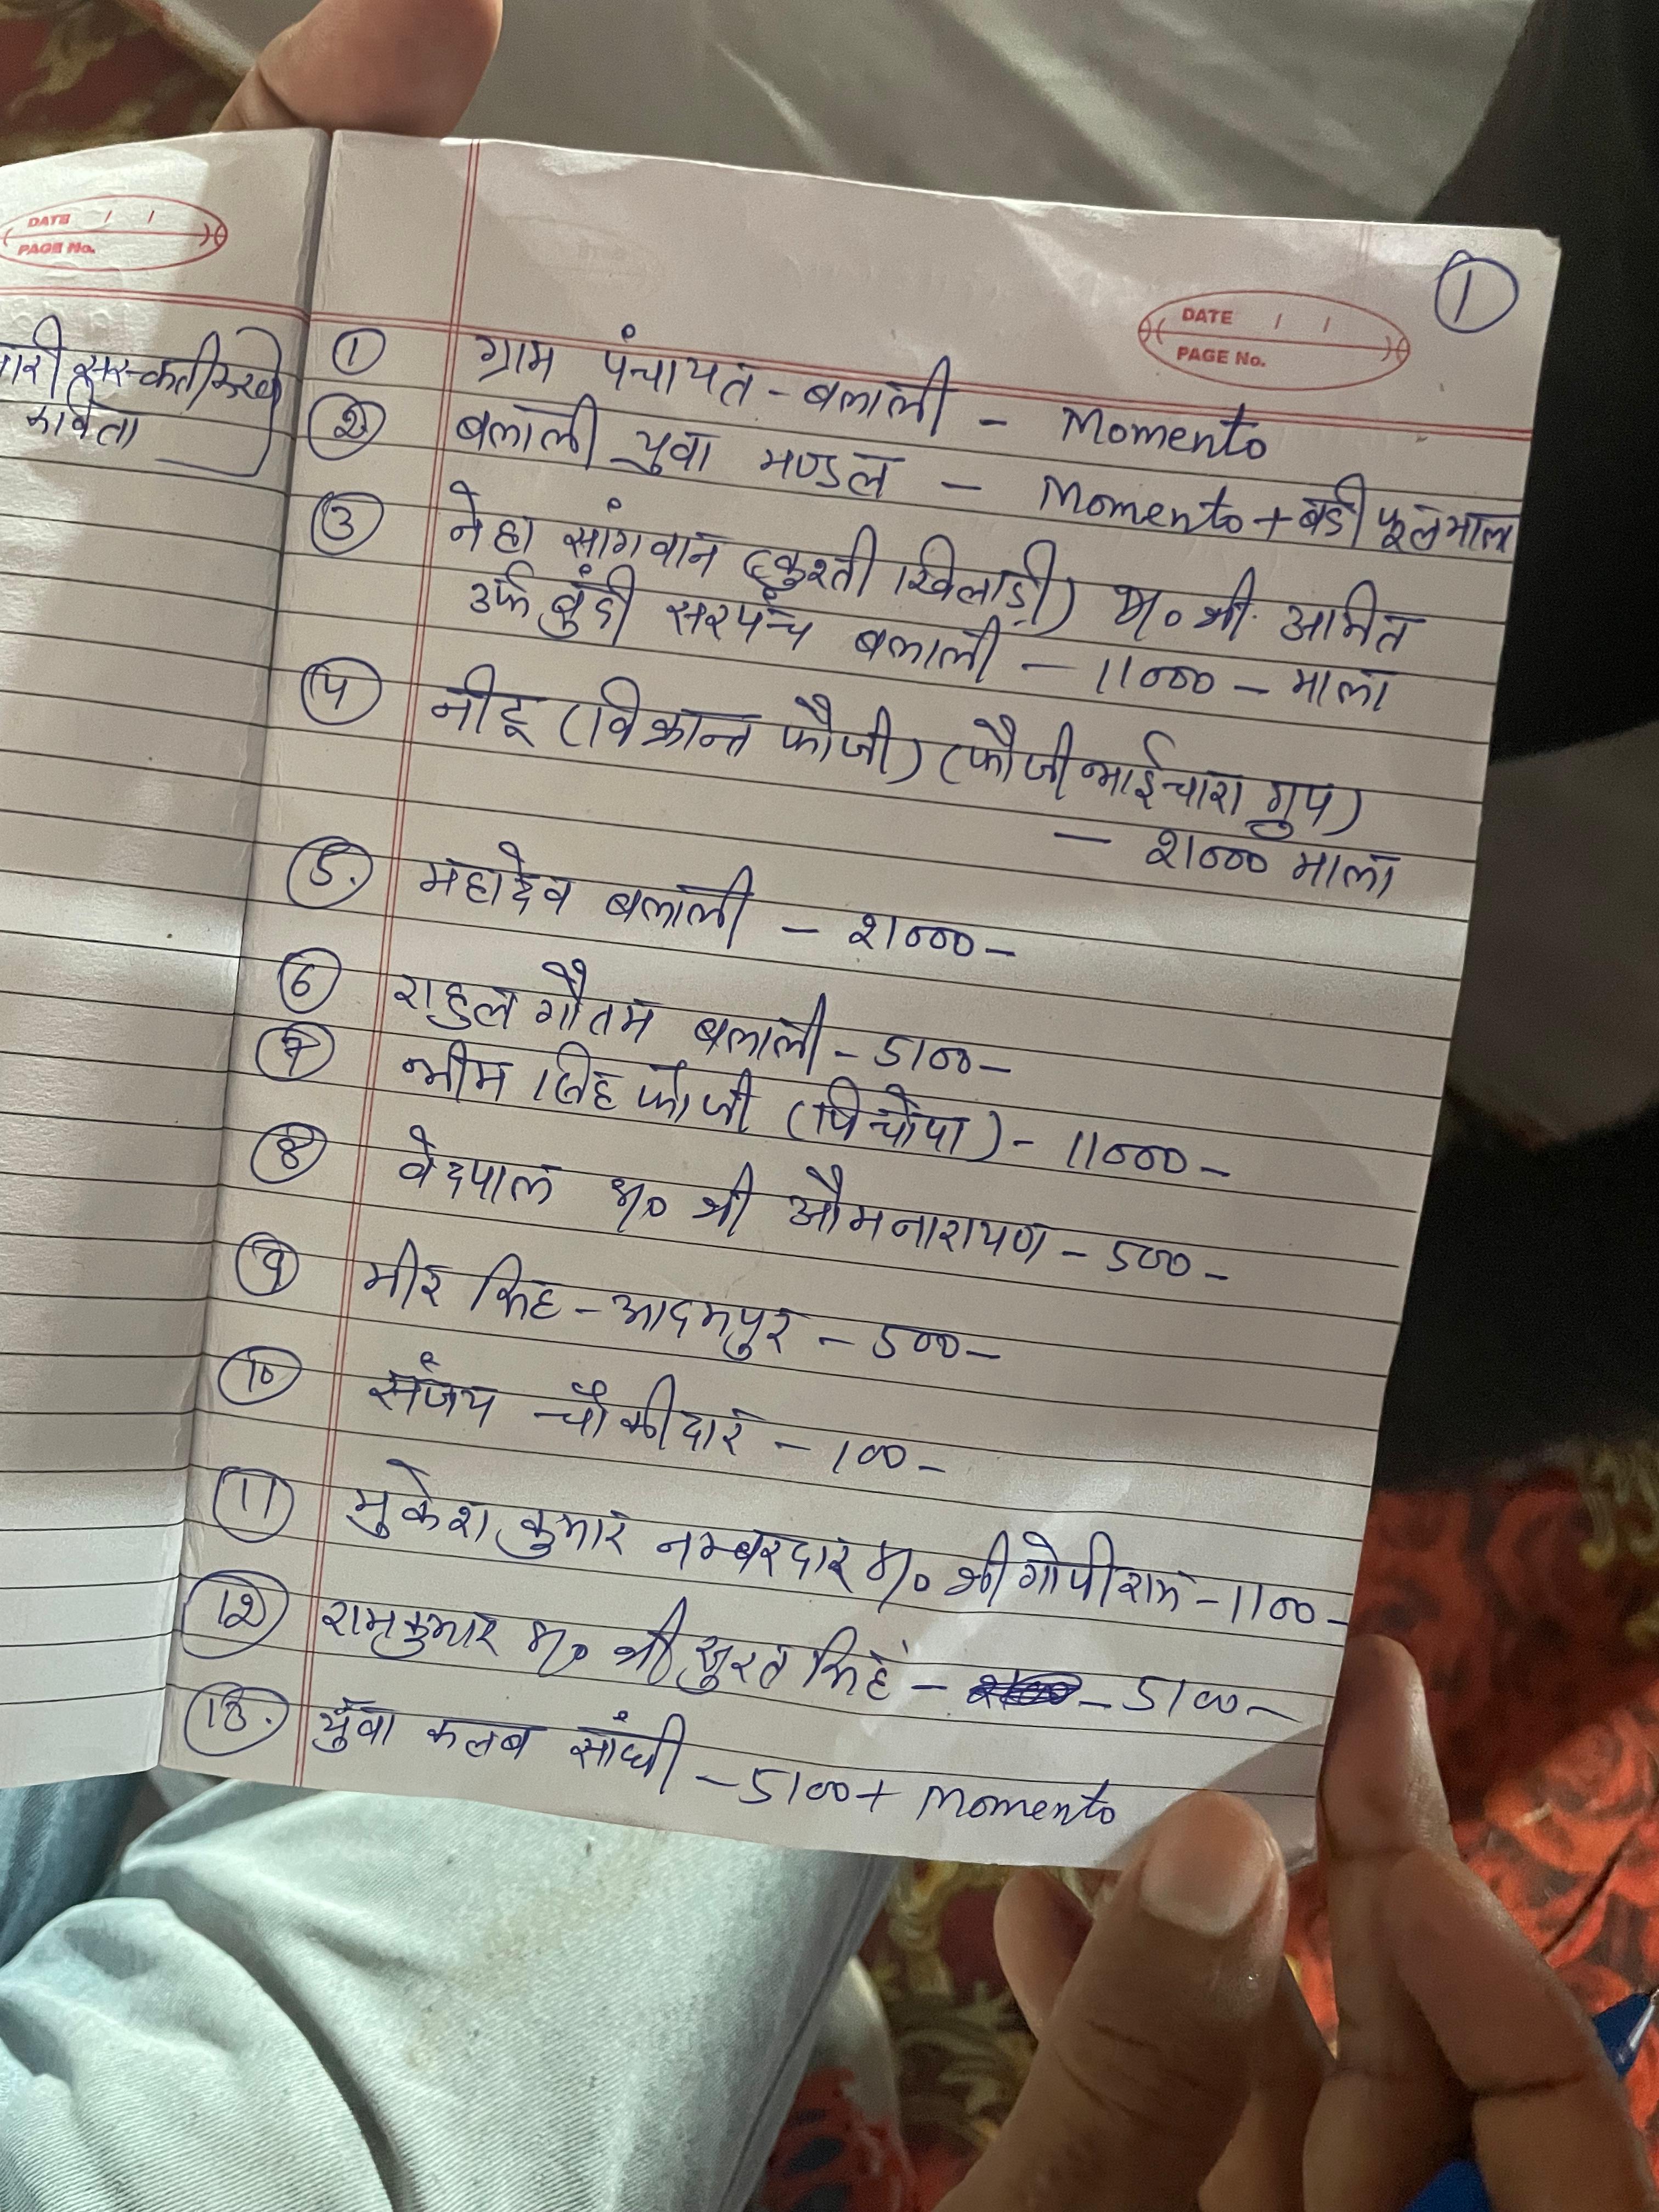 DATE / /
PAGE No.
कविता
1
DATE / /
PAGE No.
1 ग्राम पंचायत - बलाली - Momento
2 बलाली युवा मण्डल - Momento + बडी फूलमाला
3 नेहा सांगवान (कुश्ती खिलाड़ी) S/o श्री अमित
उर्फ बुंदी सरपंच बलाली - 11000 - माला
4 नीटू (विक्रान्त फौजी) (फौजी भाईचारा ग्रुप)
- 21000 माला
5. महादेव बलाली - 21000 -
6 राहुल गौतम बलाली - 5100 -
7 भीम सिंह फौजी (पिचोपा) - 11000 -
8 वेदपाल S/o श्री औमनारायण - 500 -
9 मीर सिंह - आदमपुर - 500 -
10 संजय चौकीदार - 100 -
11 मुकेश कुमार नम्बरदार S/o श्री गोपीराम - 1100 -
12 रामकुमार S/o श्री सुरत सिंह - - 5100 -
13. युवा कलब सांघी - 5100 + Momento